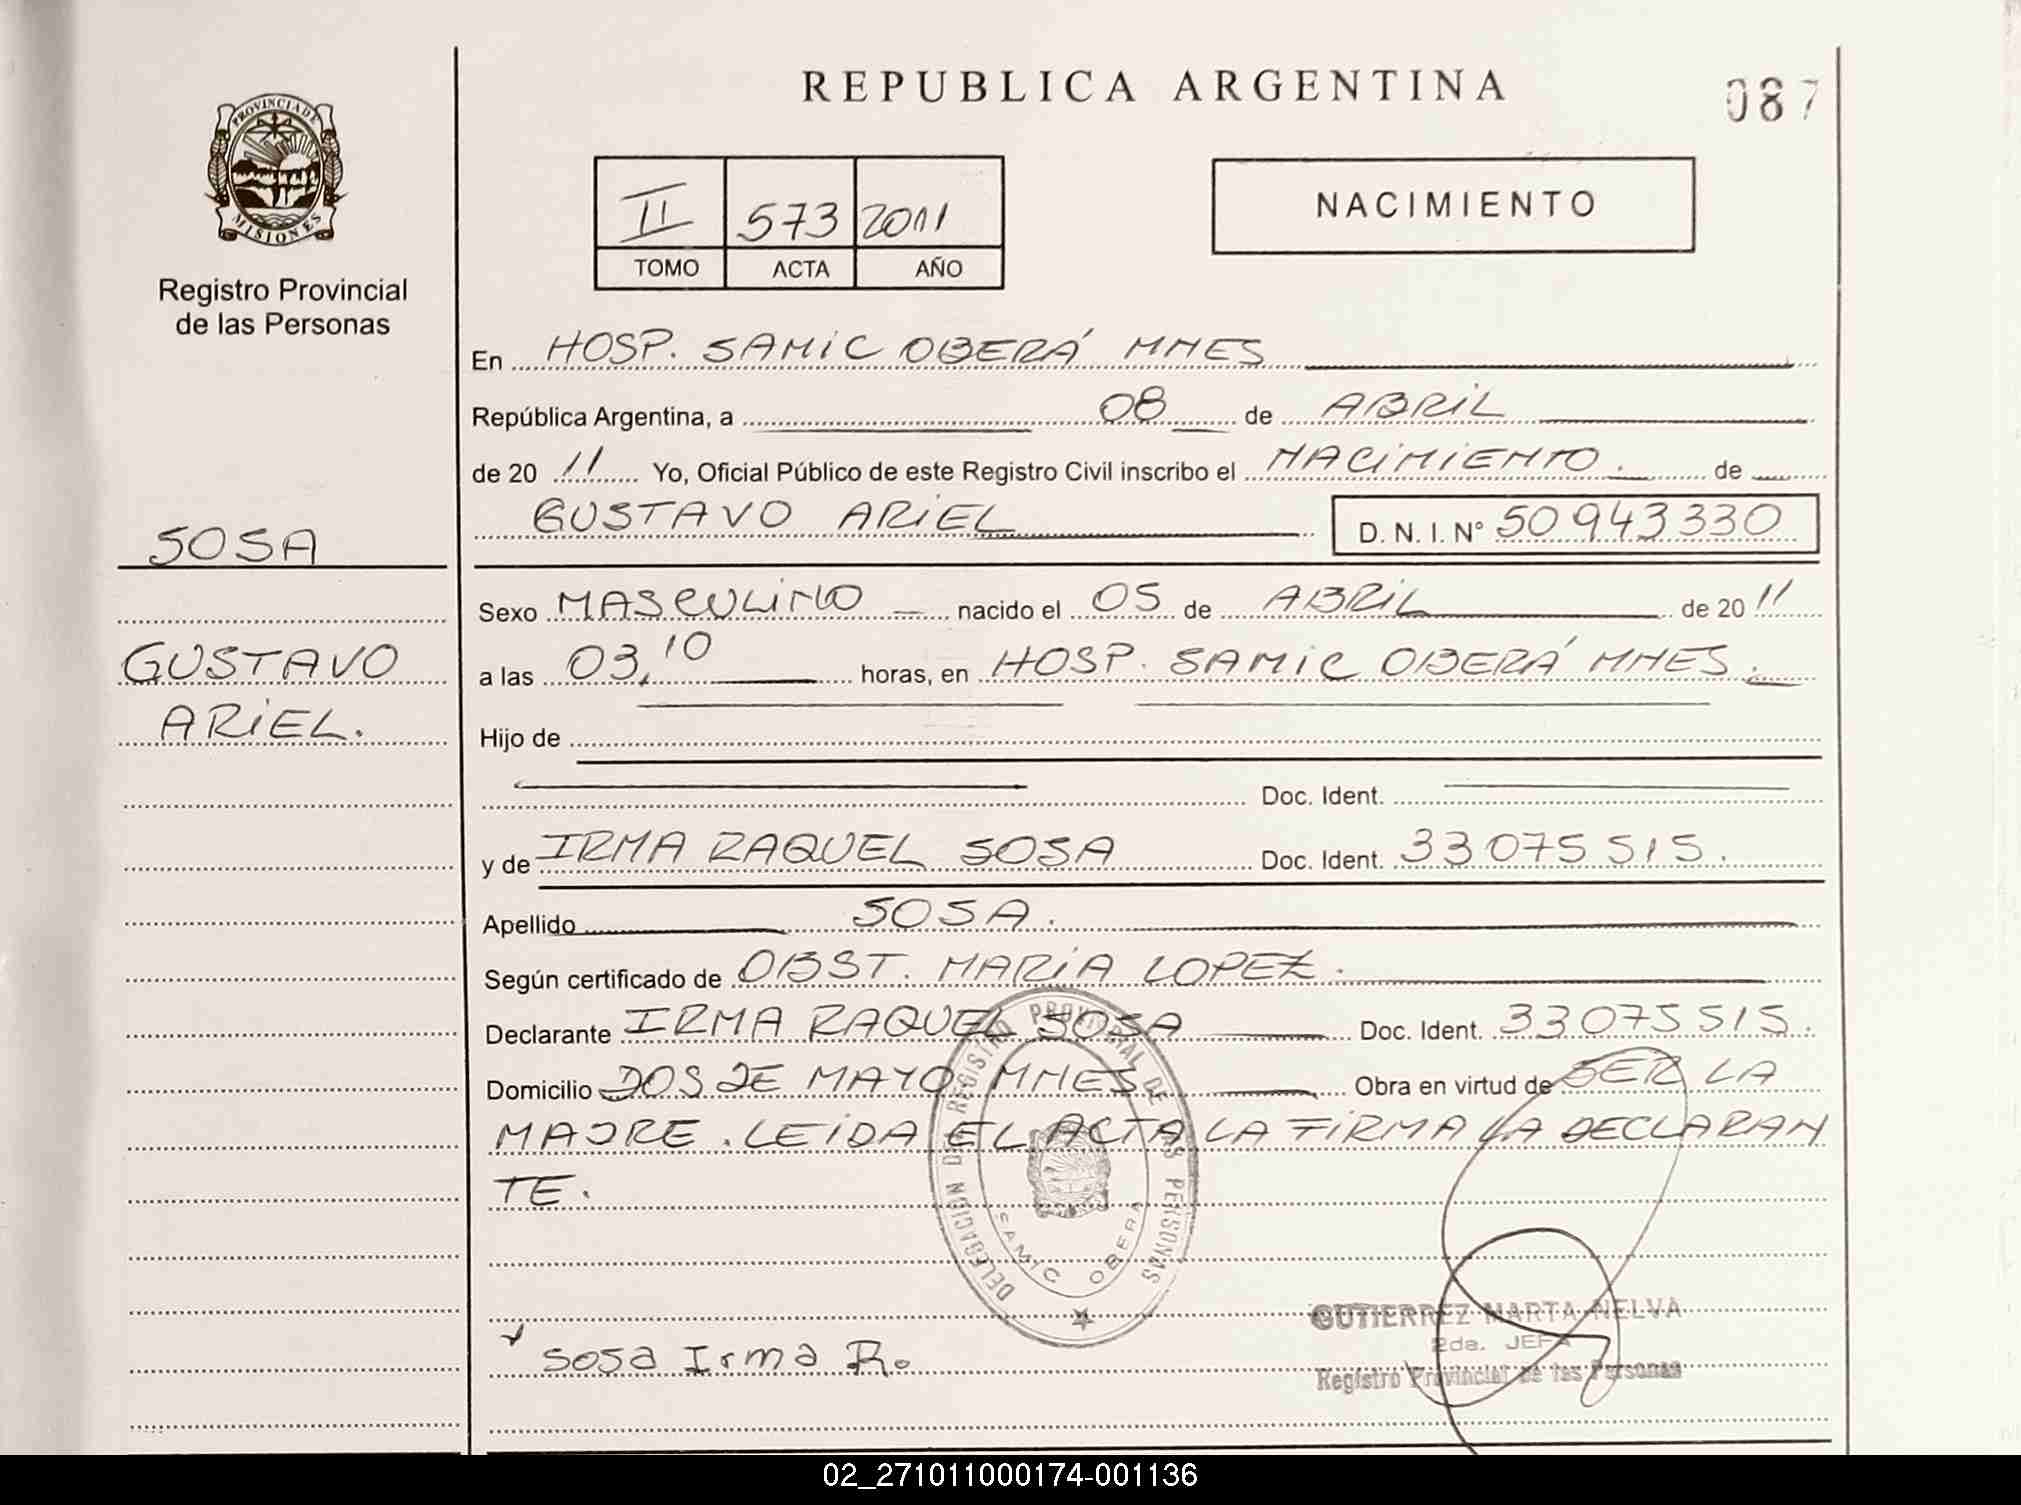 REPUBLICA ARGENTINA
087
PROVINCIA DE MISIONES
Registro Provincial
de las Personas
II 573 2011
TOMO ACTA AÑO
NACIMIENTO
En HOSP. SAMIC OBERÁ MNES
República Argentina, a 08 de ABRIL
de 20 11 Yo, Oficial Público de este Registro Civil inscribo el NACIMIENTO. de
GUSTAVO ARIEL D. N. I. N° 50943330
SOSA
GUSTAVO
ARIEL.
Sexo MASCULINO nacido el 05 de ABRIL de 20 11
a las 03,10 horas, en HOSP. SAMIC OBERÁ MNES.
Hijo de
Doc. Ident.
y de IRMA RAQUEL SOSA Doc. Ident. 33075515.
Apellido SOSA.
Según certificado de OBST. MARÍA LOPEZ.
Declarante IRMA RAQUEL SOSA Doc. Ident. 33075515.
Domicilio DOS DE MAYO MNES Obra en virtud de SER LA
MADRE. LEIDA EL ACTA LA FIRMA LA DECLARAN
TE.
DELEGACION DE REGISTRO PROVINCIAL DE LAS PERSONAS
SAMIC OBERA
Sosa Irma R.
GUTIERREZ MARTA NELVA
2da. JEFA
Registro Provincial de las Personas
02_271011000174-001136